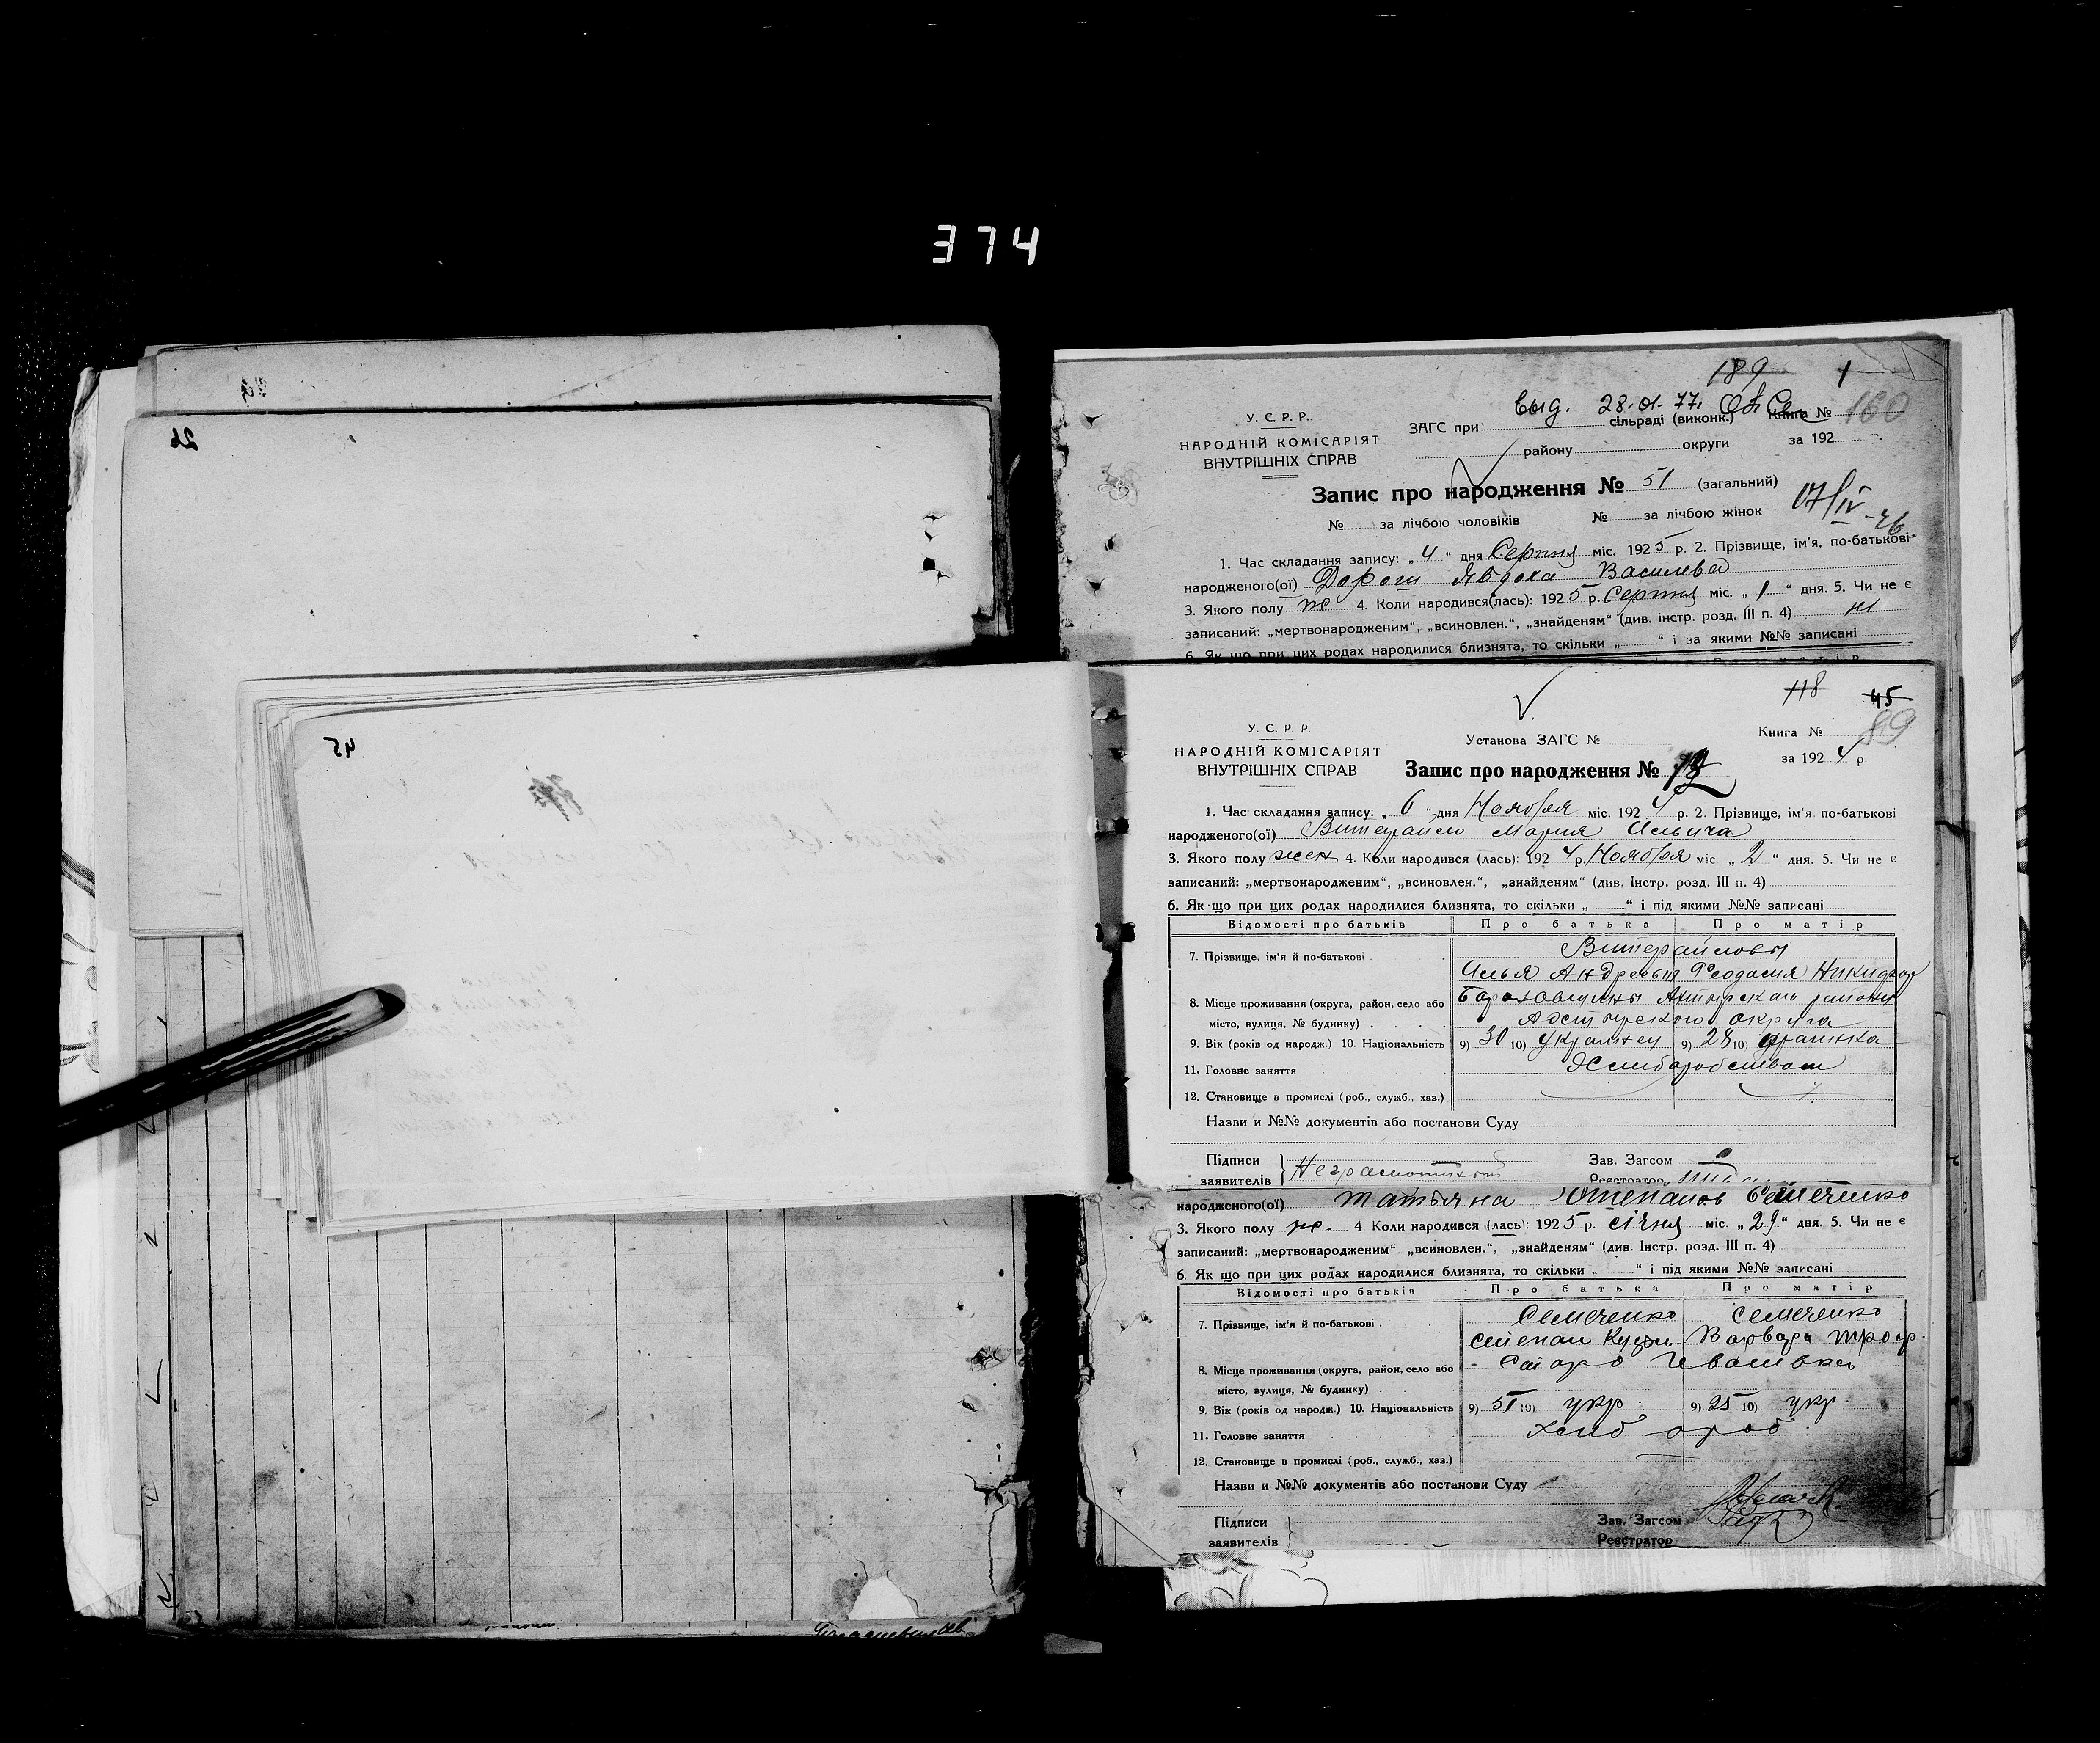 374
26
45
189 1
Выд. 28.01.77.
У. С. Р. Р.
НАРОДНІЙ КОМІСАРІЯТ
ВНУТРІШНІХ СПРАВ
ЗАГС при сільраді (виконк.) Книга № 160
району округи за 192
Запис про народження № 51 (загальний)
№ за лічбою чоловіків № за лічбою жінок
1. Час складання запису: „ 4 “ дня Серпня міс. 1925 р. 2. Прізвище, ім'я, по-батькові
народженого(ої) Явдоха Василева
3. Якого полу ж 4. Коли народився(лась): 1925 р. Серпня міс. „ 1 “ дня. 5. Чи не є
записаний: „мертвонародженим“, „всиновлен.“, „знайденям“ (див. інстр. розд. III п. 4) ні
6. Як що при цих родах народилися близнята, то скільки „ “ і за якими №№ записані
118 45
У. С. Р. Р.
НАРОДНІЙ КОМІСАРІЯТ
ВНУТРІШНІХ СПРАВ
Установа ЗАГС №
Книга № 89
за 1924 р.
Запис про народження №
1. Час складання запису: „ 6 “ дня Ноября міс. 1924 р. 2. Прізвище, ім'я, по-батькові
народженого(ої) Мария Ильича
3. Якого полу жен 4. Коли народився (лась): 1924 р. Ноября міс „ 2 “ дня. 5. Чи не є
записаний: „мертвонародженим“, „всиновлен.“, „знайденям“ (див. Інстр. розд. III п. 4)
6. Як-що при цих родах народилися близнята, то скільки „ “ і під якими №№ записані
Відомості про батьків Про батька Про матір
7. Прізвище, ім'я й по-батькові
Илья Андреевич Феодасия Никифор
8. Місце проживання (округа, район, село або Ахтирскаго района
місто, вулиця, № будинку) округа
9. Вік (років од народж.) 10. Національність 9) 30 10) Украинец 9) 28 10)
11. Головне заняття
12. Становище в промислі (роб., служб., хаз.)
Назви и №№ документів або постанови Суду
Підписи
заявителів
Зав. Загсом
Реєстратор
народженого(ої) Татьяна Степанов Семеченко
3. Якого полу ж. 4 Коли народився (лась): 1925 р. січня міс. „ 29 “ дня. 5. Чи не є
записаний: „мертвонародженим“ „всиновлен.“, „знайденям“ (див. Інстр. розд. III п. 4)
6. Як що при цих родах народилися близнята, то скільки „ “ і під якими №№ записані
Відомості про батьків Про батька Про матір
7. Прізвище, ім'я й по-батькові Семеченко Семеченко
Степан Варвара Троф.
8. Місце проживання (округа, район, село або Старо Ивановка
місто, вулиця, № будинку)
9. Вік (років од народж.) 10. Національність 9) 51 10) укр 9) 25 10) укр.
11. Головне заняття Хлібороб
12. Становище в промислі (роб., служб., хаз.)
Назви и №№ документів або постанови Суду
Підписи
заявителів
Зав. Загсом
Реєстратор